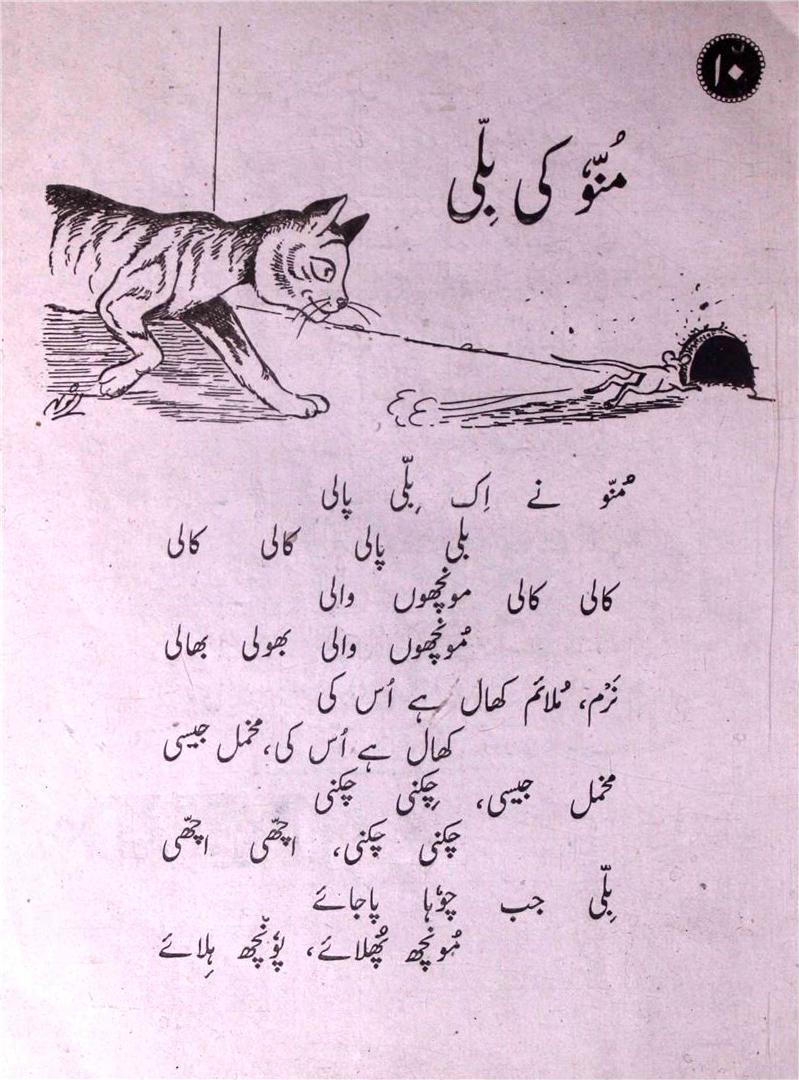 ۱۰
مُنّوْ کی بِلّی
مُنّو نے اِک بِلّی پالی
بلی پالی کالی کالی
کالی کالی مونچھوں والی
مُونچھوں والی بھولی بھالی
نَرْم، مُلائم کھال ہے اُس کی
کھال ہے اُس کی، مخمل جیسی
مخمل جیسی، چِکنی چکنی
چکنی چکنی، اچّھی اچّھی
بِلّی جب چوٗہا پاجائے
مُونچھ پُھلائے، پوٗنچھ ہِلائے